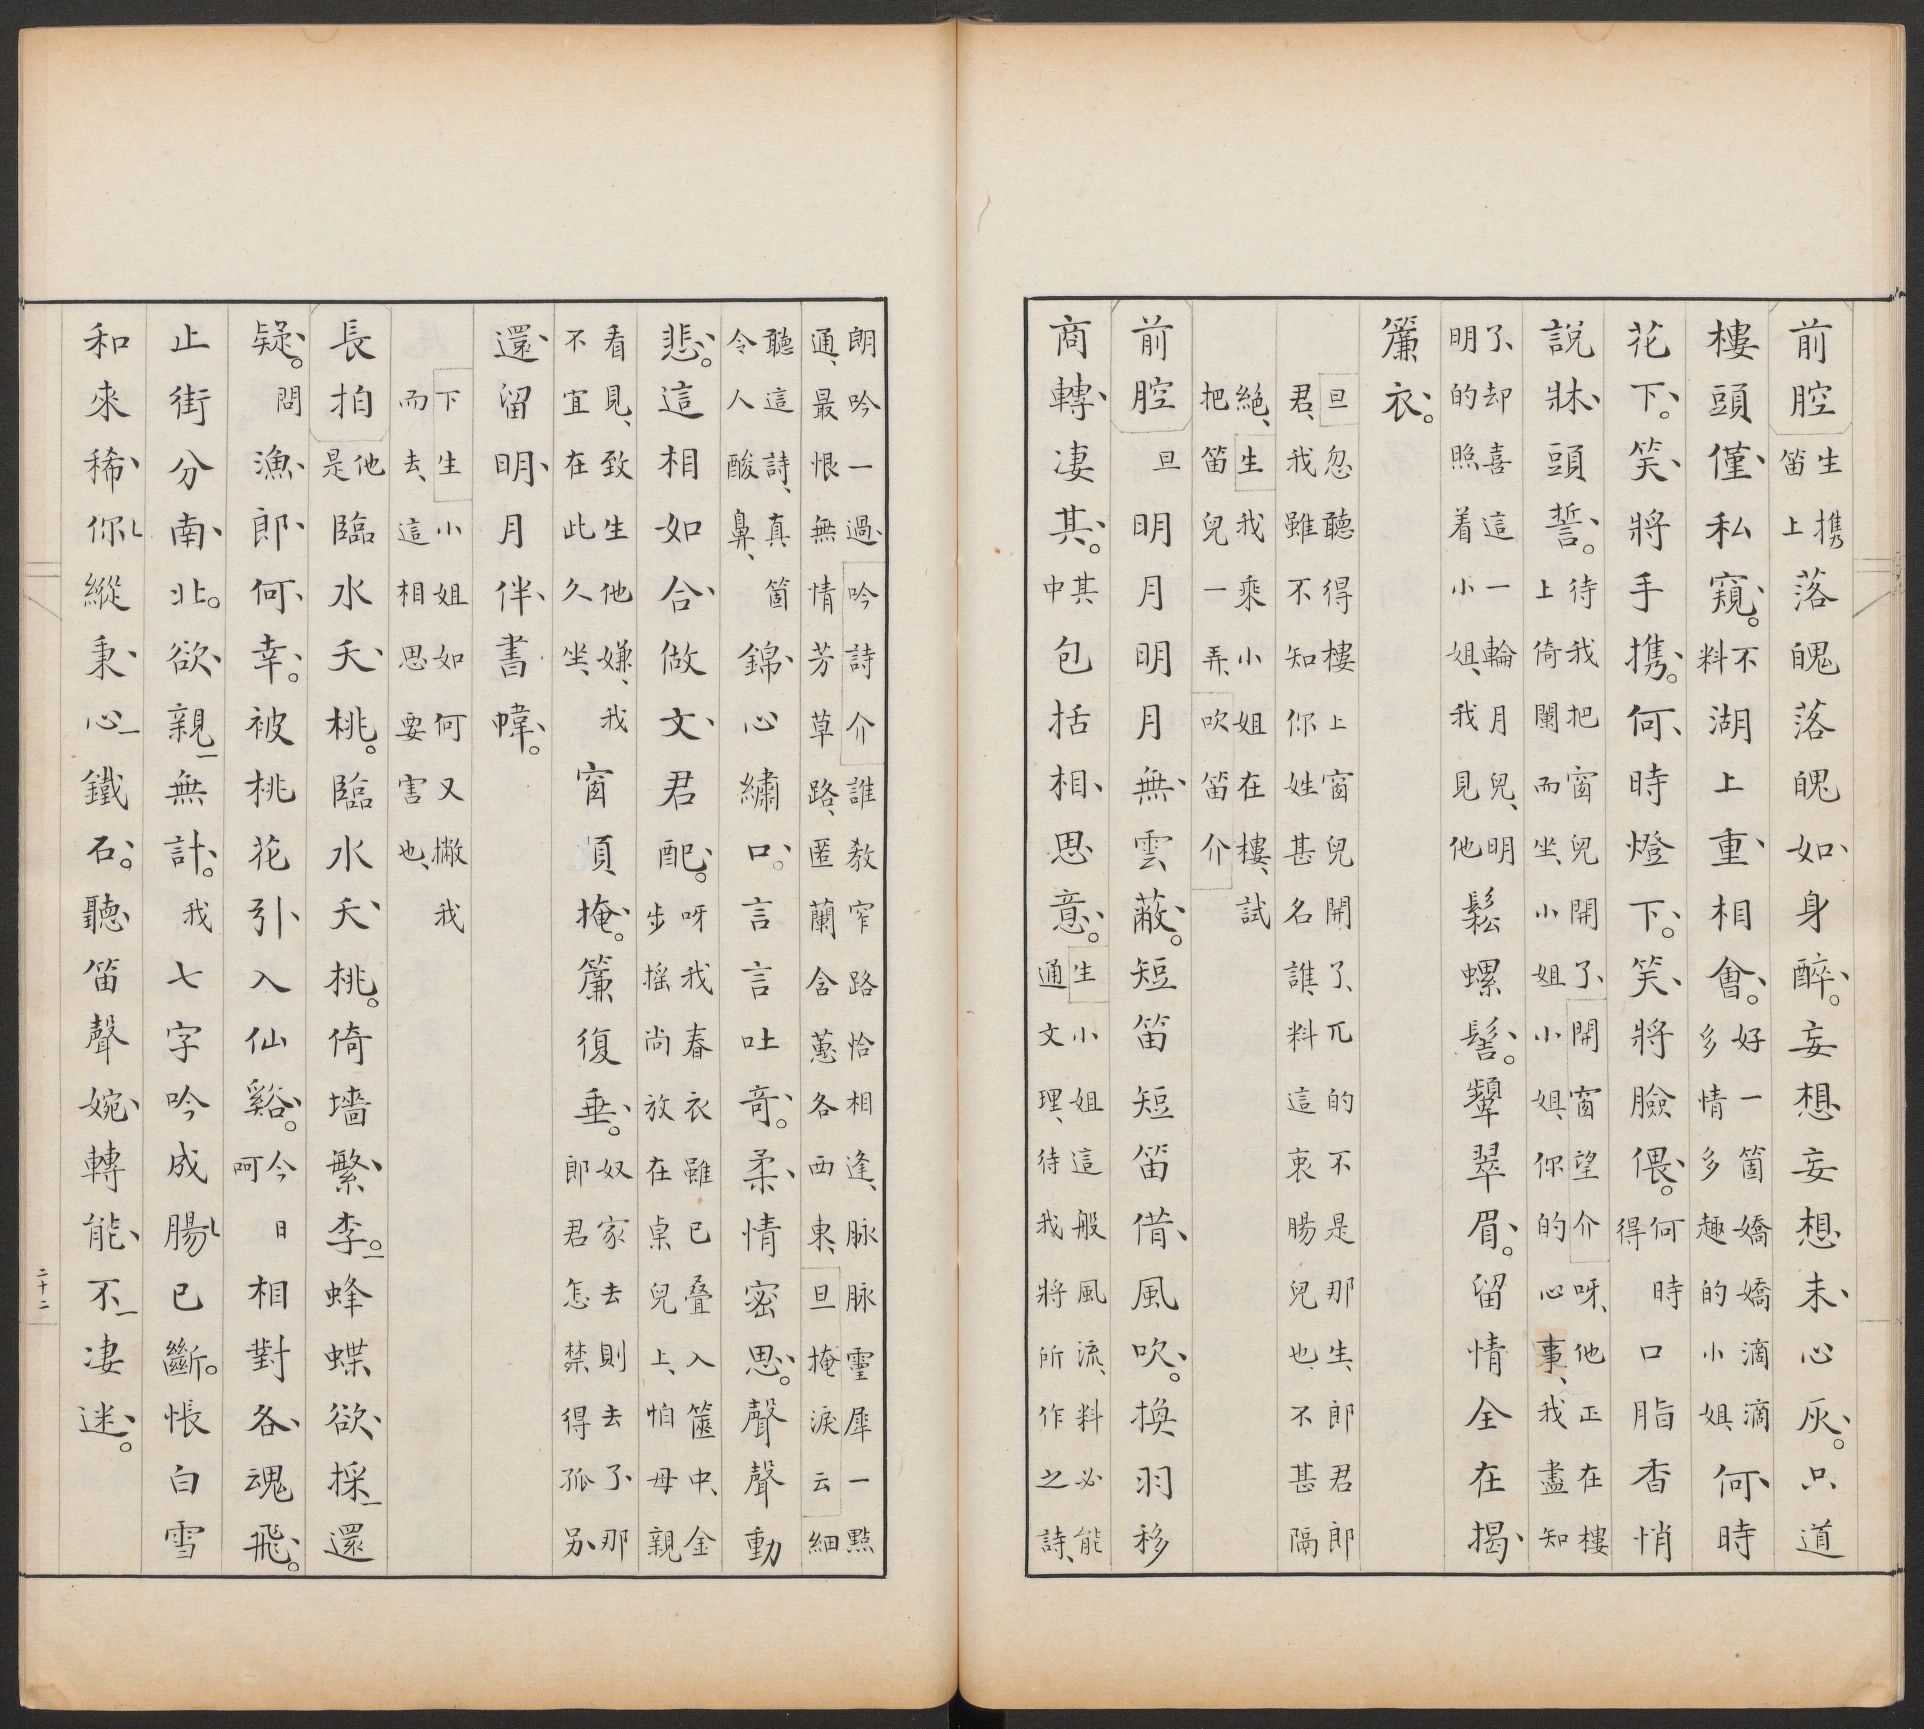 前腔生携笛上落魄落魄如身醉。妄想妄想未心灰。只道
樓頭僅私窺。不料湖上重相會。好一箇嬌嬌滴滴多情多趣的小姐何時
花下。笑將手携。何時燈下。笑將臉偎。何時得口脂香悄
說牀頭誓。待我把窗兒開了、開窗望介呀、他正在樓上倚闌而坐、小姐小姐、你的心事、我盡知
了、却喜這一輪月兒、明明的照着小姐、我見他鬆螺髻。顰翠眉。留情全在揭
簾衣。
旦忽聽得樓上窗兒開了、兀的不是那生、郎君郎君、我雖不知你姓甚名誰、料這衷腸兒也、不甚隔
絶、生我乘小姐在樓、試把笛兒一弄、吹笛介
前腔旦明月明月無雲蔽。短笛短笛借風吹。換羽移
商轉淒其。其中包括相思意。生小姐這般風流、料必能通文理、待我將所作之詩、
朗吟一過、吟詩介誰教窄路恰相逢、脉脉靈犀一點通、最恨無情芳草路、匿蘭含蕙各西東、旦掩淚云細
聽這詩、真箇令人酸鼻、錦心繡口。言言吐奇。柔情密思。聲聲動
悲。這相如合做文君配。呀我春衣雖已叠入篋中、金步摇尚放在桌兒上、怕母親
看見、致生他嫌、我不宜在此久坐、窗頁掩。簾復垂。奴家去則去了、那郎君怎禁得孤另
還留明月伴書幃。
下生小姐如何又撇我而去、這相思要害也、
長拍他是臨水夭桃。臨水夭桃。倚墻繁李。蜂蝶欲採還
疑。問漁郎何幸。被桃花引入仙谿。今日呵相對各魂飛。
止街分南北。欲親無計。我七字吟成腸已斷。悵白雪
和來稀你縱秉心鐵石。聽笛聲婉轉能不淒迷。
二十二